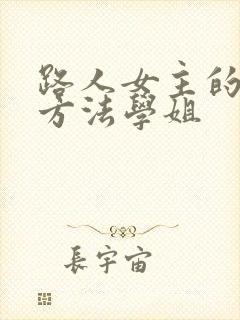 路人女主的
方法學姐
長宇宙